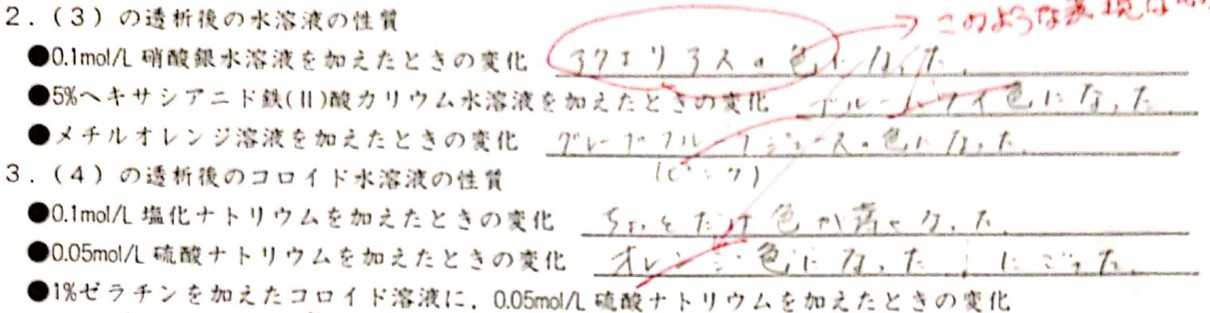 2．（3）の透析後の水溶液の性質 このような表現は
●0.1mol/L 硝酸銀水溶液を加えたときの変化 アクエリアスの色になった．
●5%ヘキサシアニド鉄(Ⅱ)酸カリウム水溶液を加えたときの変化 ブルーハワイ色になった
●メチルオレンジ溶液を加えたときの変化 グレープフルーツジュースの色になった．
(ピンク)
3．（4）の透析後のコロイド水溶液の性質
●0.1mol/L 塩化ナトリウムを加えたときの変化 ちょっとだけ色が薄くなった．
●0.05mol/L 硫酸ナトリウムを加えたときの変化 オレンジ色になった にごった．
●1%ゼラチンを加えたコロイド溶液に，0.05mol/L 硫酸ナトリウムを加えたときの変化